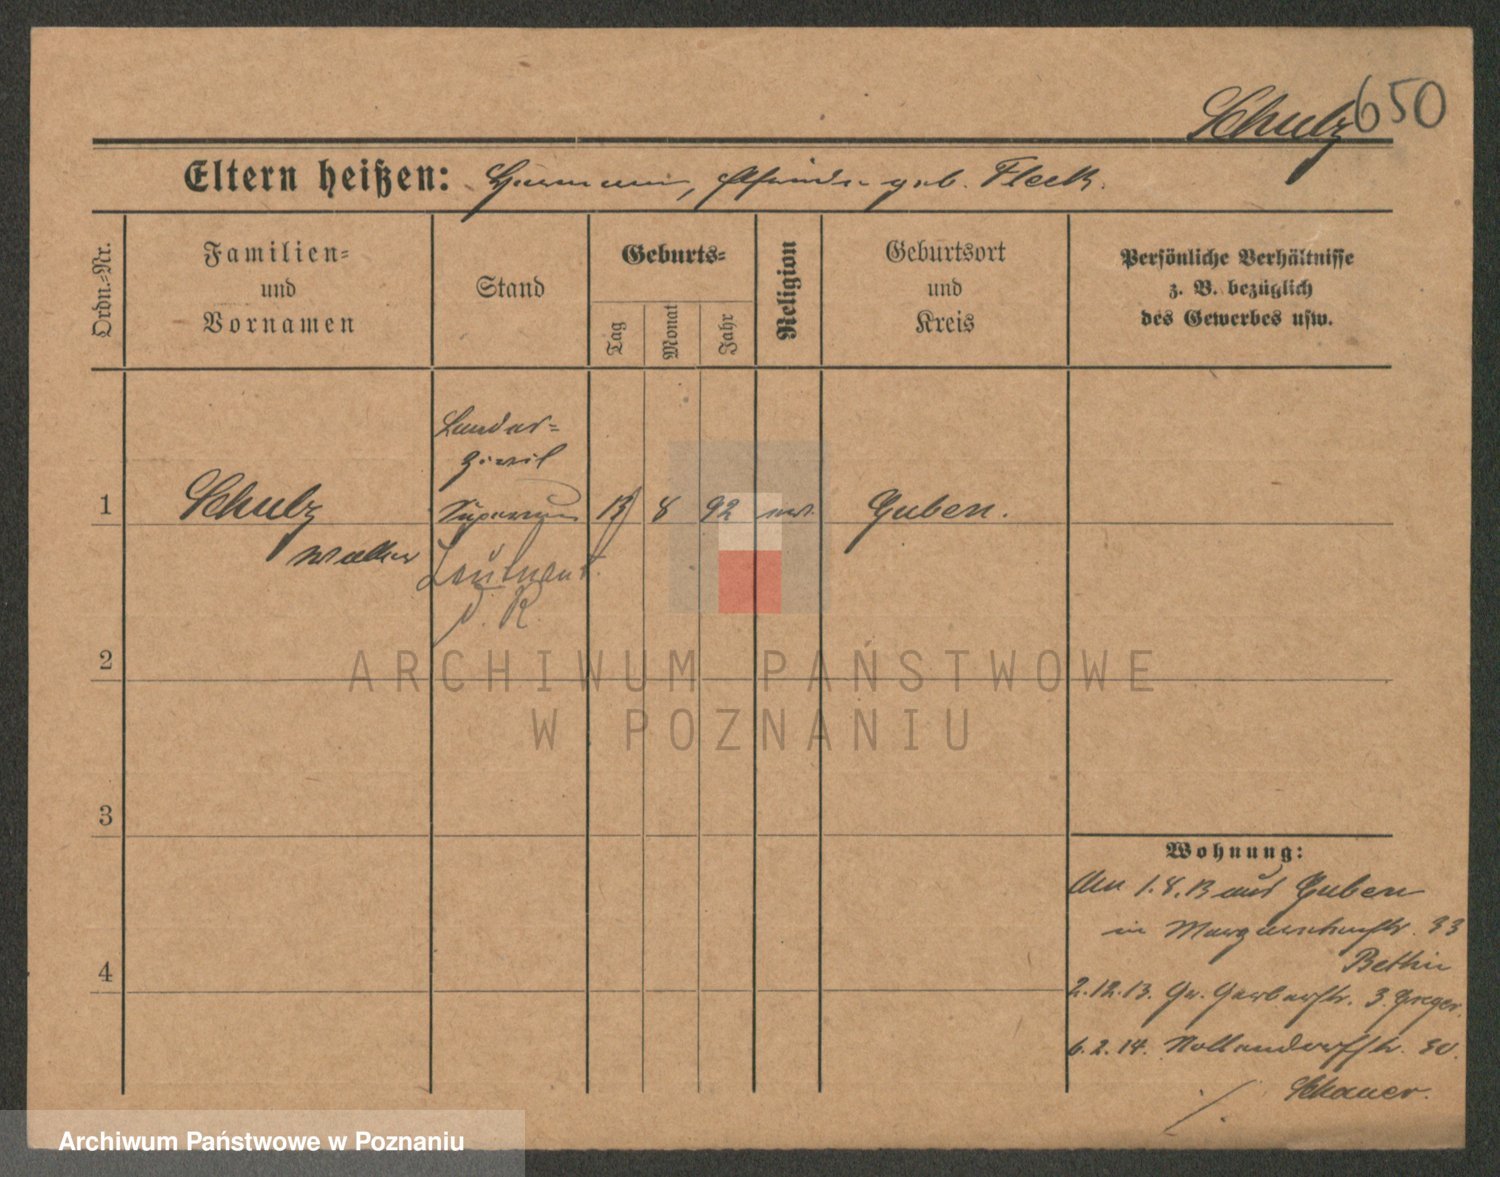 650
Schulz
Eltern heißen: Hermann, geb. Fleck.
Ordn.-Nr.
Familien-
und
Vornamen
Stand
Geburts-
Tag
Monat
Jahr
Religion
Geburtsort
und
Kreis
Persönliche Verhältnisse
z. B. bezüglich
des Gewerbes usw.
1
Schulz
Walter
Zivil
Supernum
Leutnant
d. R.
13 8 92 ev.
Guben.
2
3
4
Wohnung:
Am 1.8.13 aus Guben
in 33
Bettin
2.12.13. Gr. Gerberstr. 3.
6.2.14. Nollendorfstr. 30.
Schauer.
ARCHIWUM PAŃSTWOWE
W POZNANIU
Archiwum Państwowe w Poznaniu